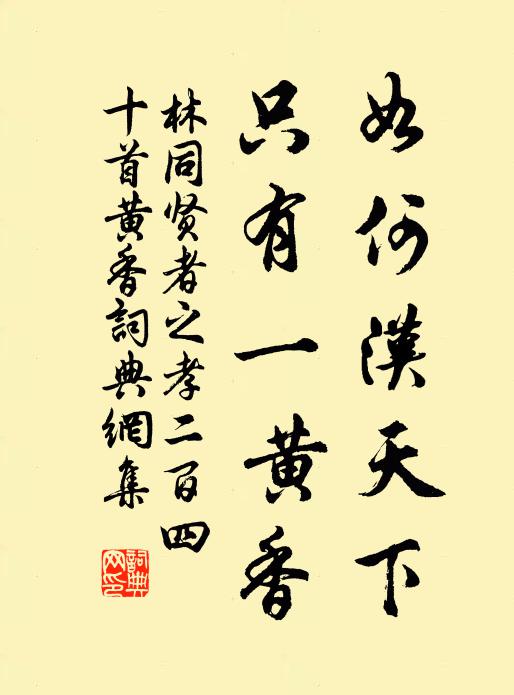 如何漢天下
只有一黄香
林同贤者之孝二百四
十首黄香詞典網集
詞典網印